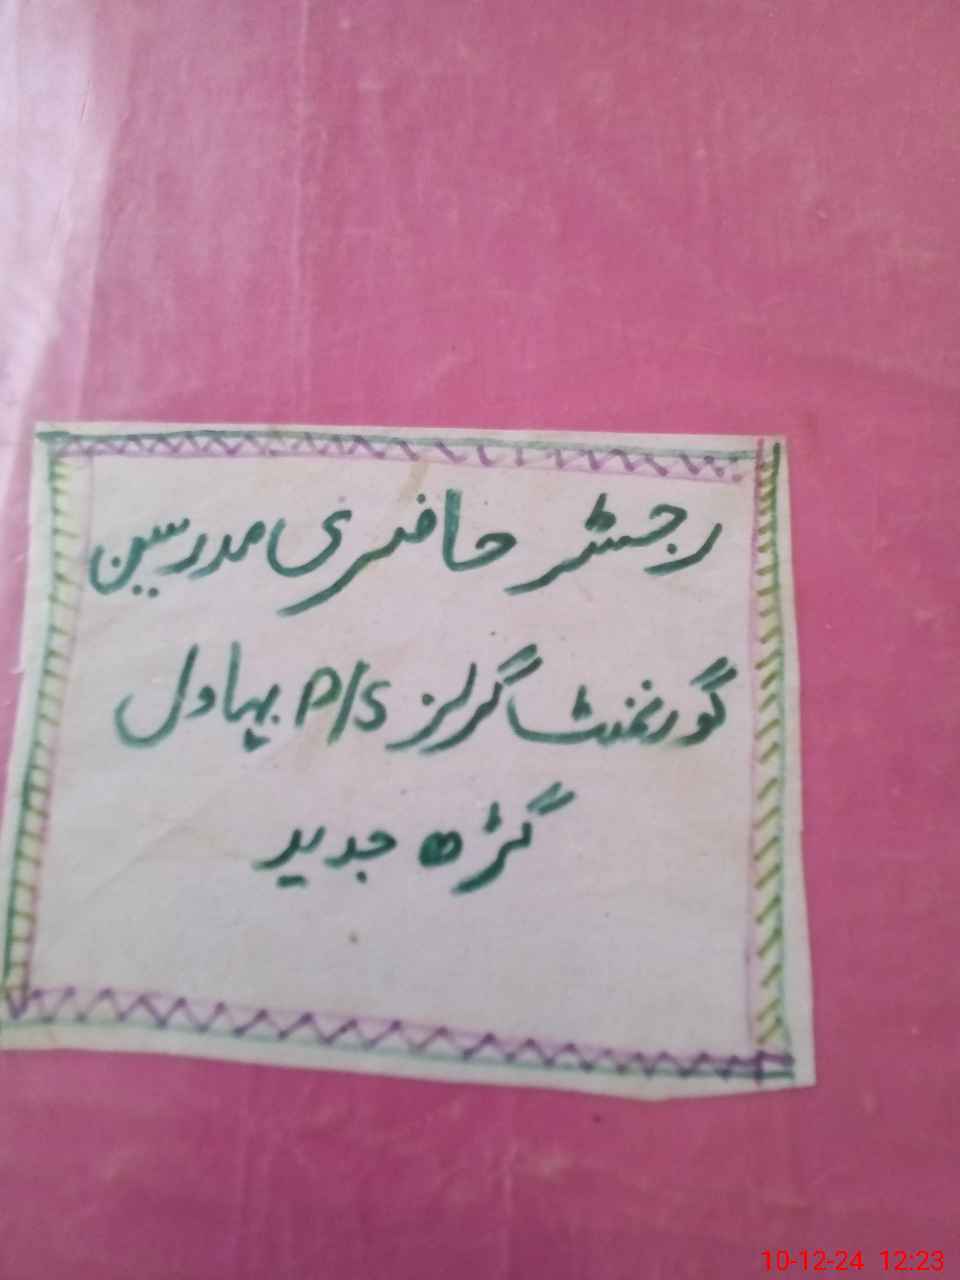 رجسٹر حاضری مدرسین
گورنمنٹ گرلز P/S بہاول
گڑھ جدید
10-12-24 12:23